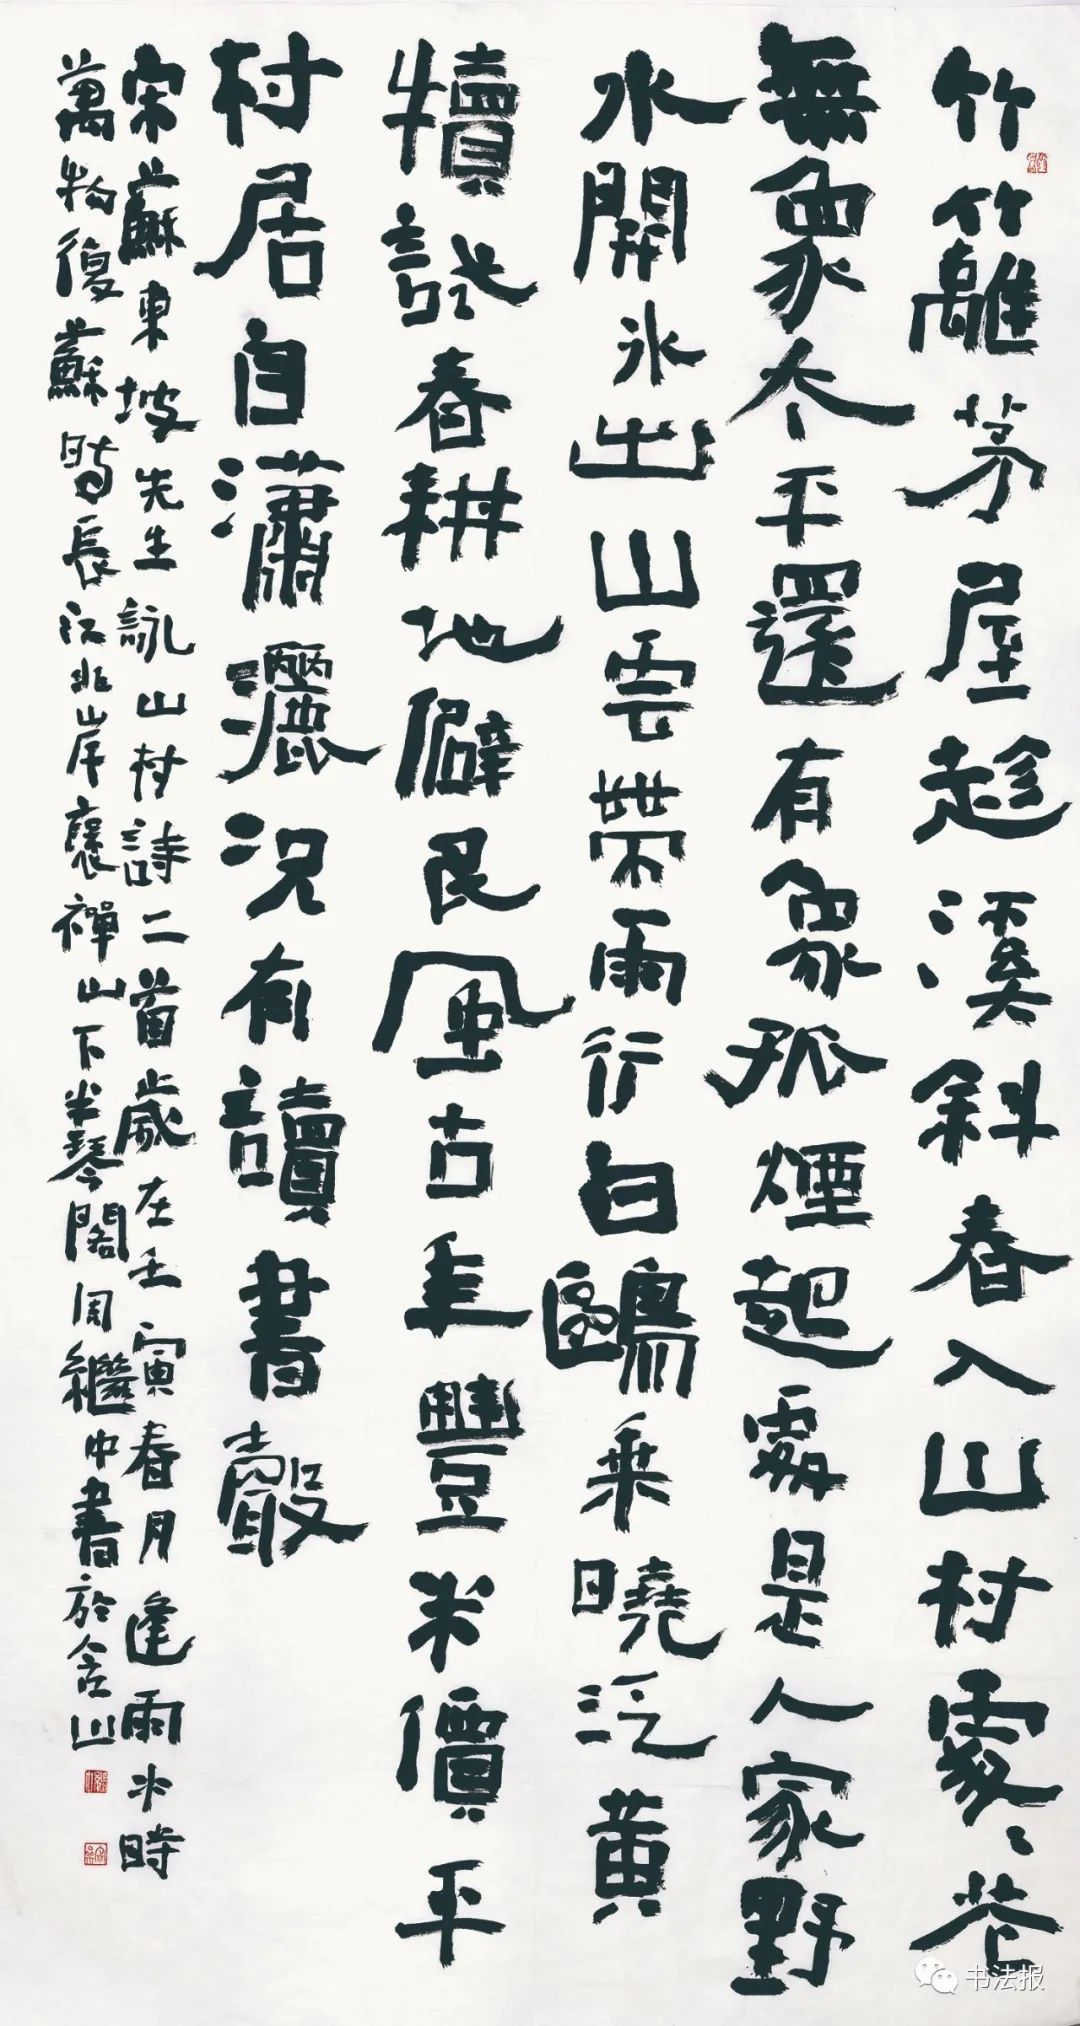 竹籬茅屋趁溪斜春入山村處〻花
無象太平還有象孤煙起處是人家野
水開冰出山雲帶雨行白鷗乘曉泛黃
犢試春耕地僻民風古年豐米價平
村居自瀟灑況有讀書聲
宋蘇東坡先生詠山村詩二首歲在壬寅春月逢雨水時
萬物復蘇時長江北岸褒禪山下半琴閣周繼中書於含山
书法报